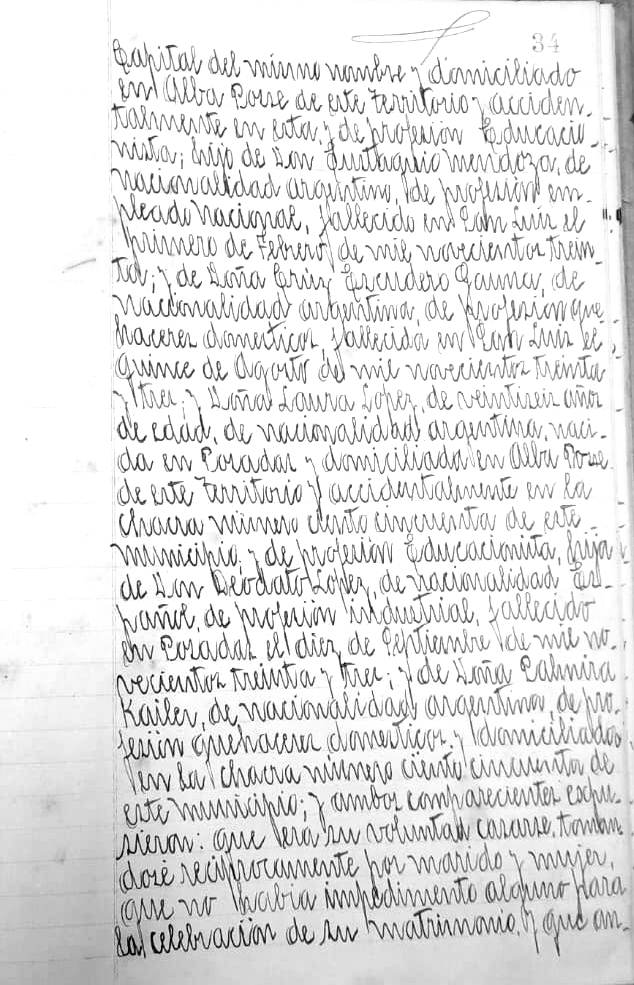 34
Capital del mismo nombre y domiciliado
en Alba Posse de este territorio y acciden-
talmente en esta, y de profesión Educacio-
nista; hijo de Don Eustaquio Mendoza, de
nacionalidad argentino, de profesión em-
pleado nacional, fallecido en San Luis el
primero de Febrero de mil novecientos trein-
ta; y de Doña Cruz Escudero Gauna, de
nacionalidad argentina, de profesión que
haceres domesticos, fallecida en San Luis el
quince de Agosto de mil novecientos treinta
y tres; y Doña Laura Lopez, de veintiseis años
de edad, de nacionalidad argentina, naci-
da en Posadas y domiciliada en Alba Posse
de este territorio y accidentalmente en la
chacra número ciento cincuenta de este
municipio, y de profesión Educacionista, hija
de Don Deodato Lopez, de nacionalidad Es-
pañol, de profesión industrial, fallecido
en Posadas el diez de Septiembre de mil no-
vecientos treinta y tres; y de Doña Palmira
Kailer, de nacionalidad argentina, de pro-
fesión quehaceres domesticos y domiciliados
en la chacra número ciento cincuenta de
este municipio; y ambos comparecientes expu-
sieron: que era su voluntad casarse, toman
dose recíprocamente por marido y mujer,
que no habia impedimento alguno para
la celebración de su matrimonio, y que an-